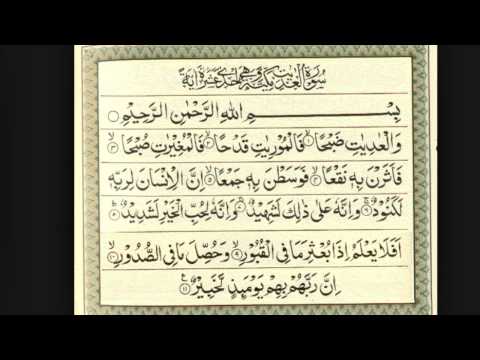 سُوْرَةُ الْعٰدِيٰتِ مَكِّيَّةٌ وَّهِىَ اِحْدٰى عَشَرَةَ اٰيَةً
بِسْمِ اللّٰهِ الرَّحْمٰنِ الرَّحِيْمِ
وَالْعٰدِيٰتِ ضَبْحًا ۙ‏﴿۱﴾ فَالْمُوْرِيٰتِ قَدْحًا ۙ‏﴿۲﴾ فَالْمُغِيْرٰتِ صُبْحًا ۙ‏﴿۳﴾
فَاَثَرْنَ بِهٖ نَقْعًا ۙ‏﴿۴﴾ فَوَسَطْنَ بِهٖ جَمْعًا ۙ‏﴿۵﴾ اِنَّ الْاِنْسَانَ لِرَبِّهٖ
لَكَنُوْدٌ ۚ‏﴿۶﴾ وَاِنَّهٗ عَلٰى ذٰلِكَ لَشَهِيْدٌ ۚ‏﴿۷﴾ وَاِنَّهٗ لِحُبِّ الْخَيْرِ لَشَدِيْدٌ ؕ‏﴿۸﴾
اَفَلَا يَعْلَمُ اِذَا بُعْثِرَ مَا فِى الْقُبُوْرِ ۙ‏﴿۹﴾ وَحُصِّلَ مَا فِى الصُّدُوْرِ ۙ‏﴿۱۰﴾
اِنَّ رَبَّهُمْ بِهِمْ يَوْمَئِذٍ لَّخَبِيْرٌ ‏﴿۱۱﴾